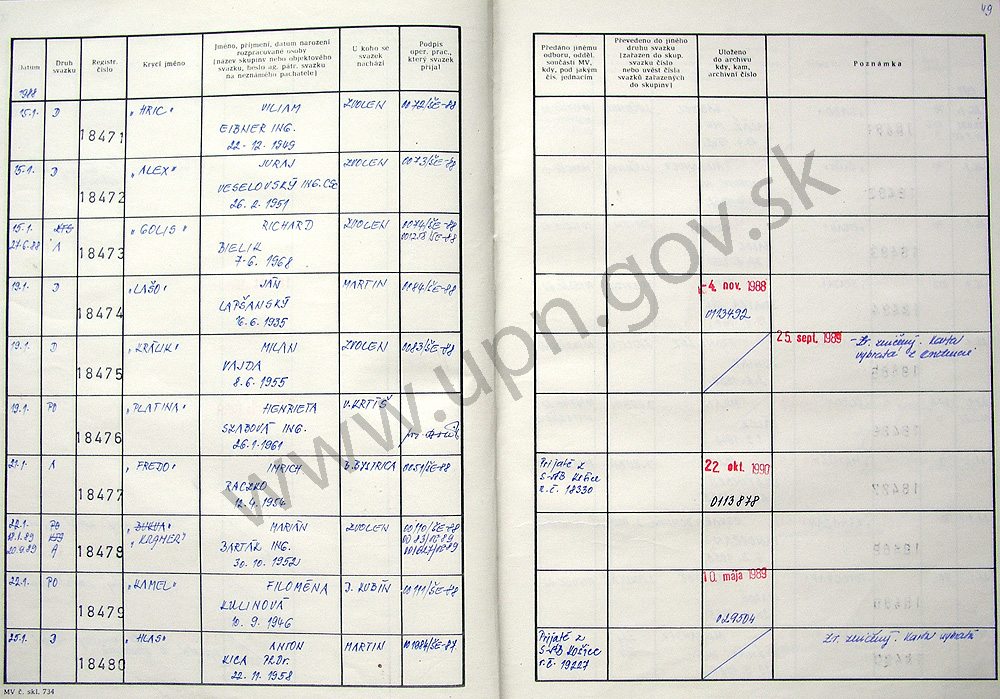 49
Datum
Druh svazku
Registr. číslo
Krycí jméno
Jméno, příjmení, datum narození
rozpracované osoby
(název skupiny nebo objektového
svazku, heslo ag. pátr. svazku
na neznámého pachatele)
U koho se
svazek
nachází
Podpis
oper. prac.,
který svazek
přijal
Předáno jinému
odboru, odděl.
součásti MV,
kdy, pod jakým
čís. jednacím
Převedeno do jiného
druhu svazku
(zařazen do skup.
svazku číslo
nebo uvést čísla
svazků zařazených
do skupiny)
Uloženo
do archivu
kdy, kam,
archivní číslo
Poznámka
1988
15.1. D 18471 "HRIC" VILIAM ZVOLEN 0072/ŠE-88
EIBNER ING.
22-12.1949
15-1. D 18472 "ALEX" JURAJ ZVOLEN 0073/ŠE-88
VESELOVSKÝ ING. CSc
26.2.1951
15.1. 18473 "GOLIS" RICHARD ZVOLEN 0074/ŠE-88
27.6.88 A BIELIK 001258/ŠE-88
7-6.1968
19.1. D 18474 "LAŠO" JÁN MARTIN 0084/ŠE-88 -4. nov. 1988
LAPŠANSKÝ 0123492
16.6.1935
19.1. D 18475 "KRÁLIK" MILAN ZVOLEN 0083/ŠE-88 25. sept. 1989 - Zv. zničený. Karta
VAJDA vybratá z evidencie
8.6.1955
19.1. PO 18476 "PLATINA" HENRIETA V. KRTÍŠ
SZABOVÁ ING.
26.1.1961
21.1. A 18477 "FREDO" IMRICH B. BYSTRICA 0051/ŠE-88 Prijaté z 22. okt. 1990
RACZKO S-ŠtB Košice
12.4.1954 r.č. 18330 0113878
22.1. PO 18478 "BUKVA" MARIÁN ZVOLEN 00110/ŠE-88
"KRAMER"
A BARTÁK ING.
30.10.1952
22.1. PO 18479 "KAMEL" FILOMÉNA D. KUBÍN 00111/ŠE-88 10. mája 1989
KULINOVÁ 029504
10.9.1946
25.1. D 18480 "HLAS" ANTON MARTIN 001084/ŠE-87 Prijaté z Zv. zničený. Karta vybratá
KICA PhDr. S-ŠtB Košice
22.11.1958 r.č. 19227
MV č. skl. 734
www.upn.gov.sk